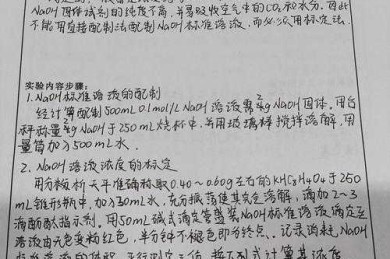 NaOH固体试剂的纯度不高,并易吸收空气中的CO2和水分,因此
不能用直接配制法配制NaOH标准溶液,而必须用标定法.
实验内容步骤:
1. NaOH标准溶液的配制
经计算配制500mL 0.1mol/L NaOH溶液需2g NaOH固体.用台
秤称量2g NaOH于250mL烧杯中,并用玻璃棒搅拌溶解,用
量筒加入500mL水.
2. NaOH溶液浓度的标定
用分析天平准确称取0.40~0.60g左右的KHC8H4O4于250
mL锥形瓶中,加入30mL水,充分振荡使其完全溶解,滴加2~3
滴酚酞指示剂.用50mL碱式滴定管盛装NaOH标准溶液滴定至
溶液由无色变粉红色,半分钟不褪色即为终点.记录消耗NaOH